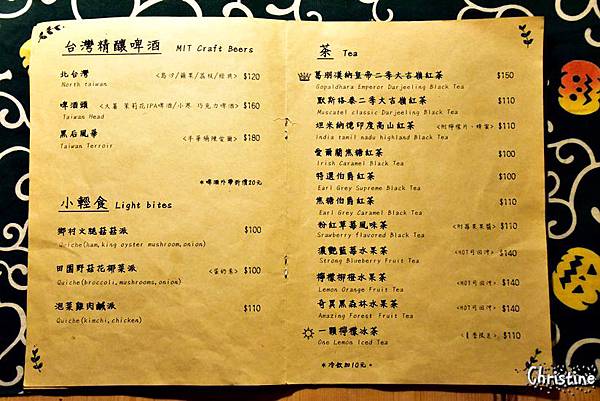 台灣精釀啤酒 MIT Craft Beers
北台灣 <島沙/蘋果/荔枝/經典> $120
North taiwan
啤酒頭 <大暑 茉莉花IPA啤酒/小寒 巧克力啤酒> $160
Taiwan Head
黑后風華 $180
Taiwan Terroir
*啤酒外帶折價20元
小輕食 Light bites
鄉村火腿菇菇派 $100
Quiche(ham,king oyster mushroom,onion)
田園野菇花椰菜派 <蛋奶素> $100
Quiche(broccoli,mushrooms,onion)
泡菜雞肉鹹派 $110
Quiche(kimchi,chicken)
茶 Tea
葛朋漢納皇帝二季大吉嶺紅茶 $150
Gopaldhara Emperor Darjeeling Black Tea
默斯格泰二季大吉嶺紅茶 $110
Muscatel classic Darjeeling Black Tea
坦米納德印度高山紅茶 <附檸檬片、蜂蜜> $110
India tamil nadu highland Black Tea
愛爾蘭焦糖紅茶 $100
Irish Caramel Black Tea
特選伯爵紅茶 $100
Earl Grey Supreme Black Tea
焦糖伯爵紅茶 $110
Earl Grey Caramel Black Tea
粉紅草莓風味茶 <附莓果果醬> $110
Srawberry flavored Black Tea
濃艷藍莓水果茶 <HOT可回沖> $140
Strong Blueberry Fruit Tea
檸檬柳橙水果茶 <HOT可回沖> $140
Lemon Orange Fruit Tea
奇異黑森林水果茶 <HOT可回沖> $140
Amazing Forest Fruit Tea
一顆檸檬冰茶 $110
One Lemon Iced Tea
*冷飲加10元。
Christine